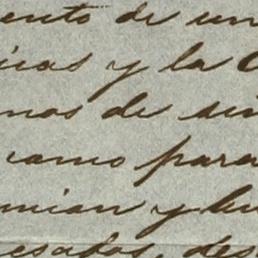 ento de un
icas y la C
nos de sin
como para
unian y bu
esados, des